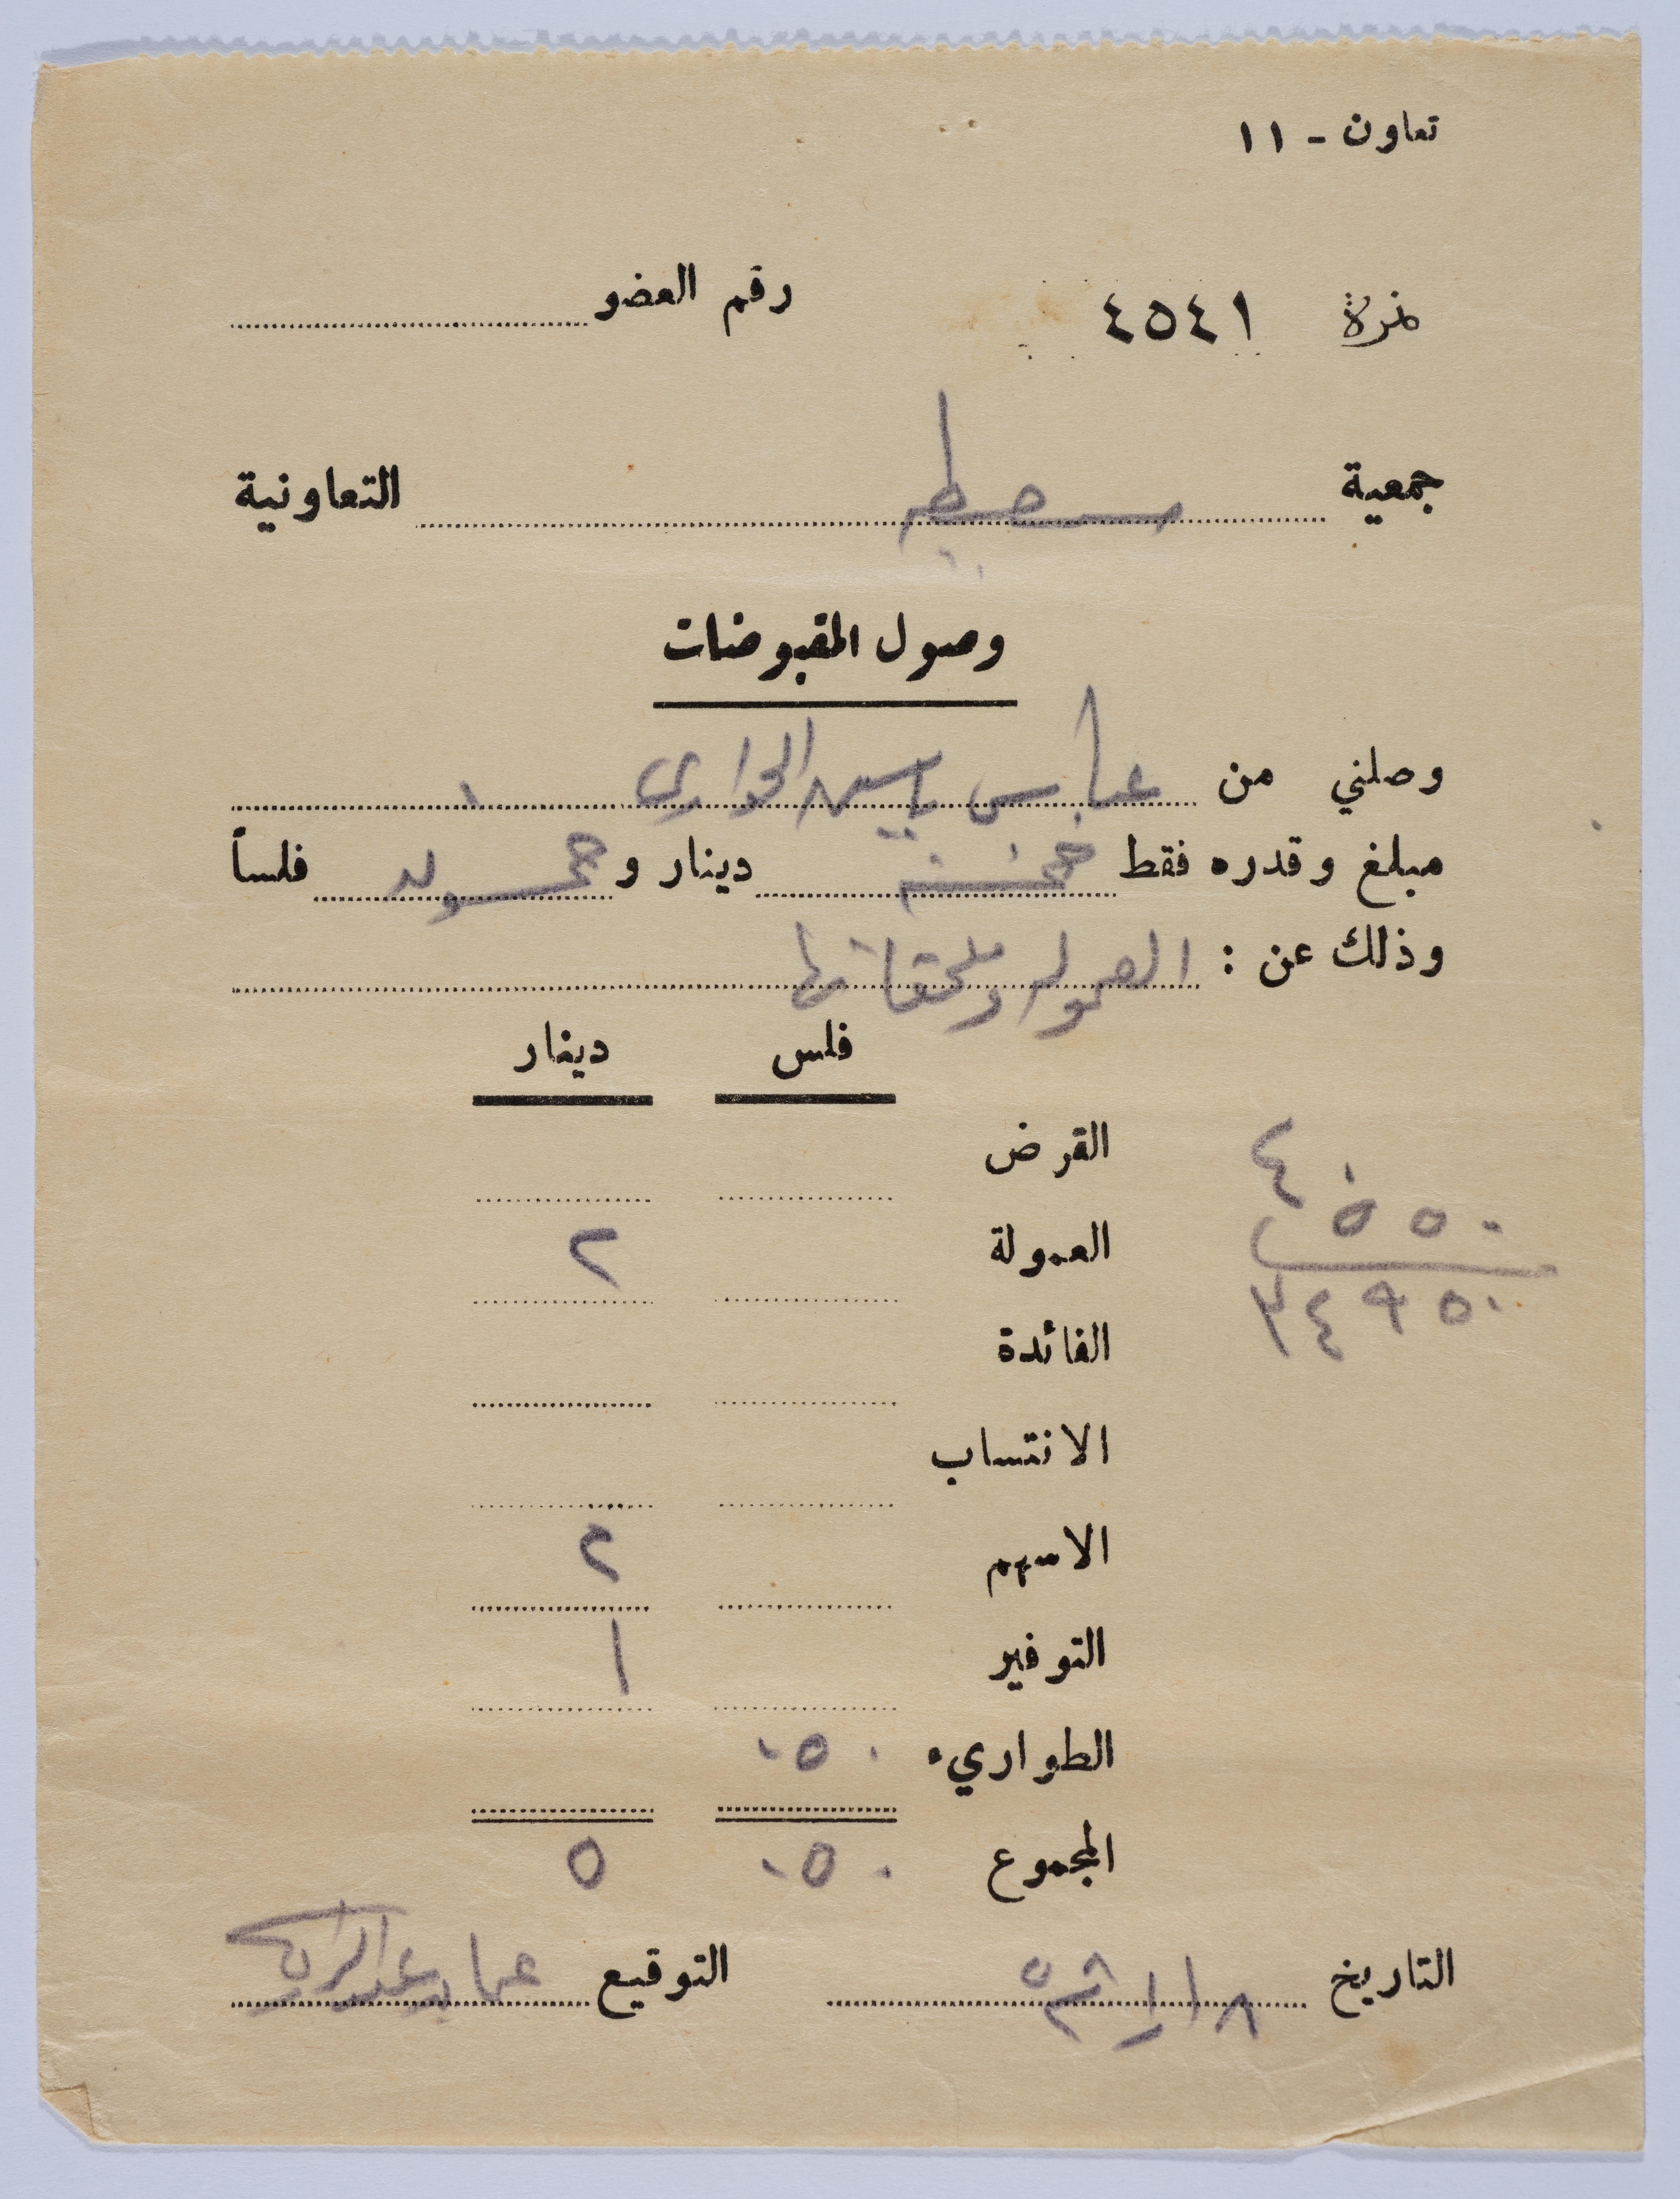 تعاون - ١١
نمرة ٤٥٤١ رقم العضو
جمعية التعاونية
وصول المقبوضات
وصلني من عباس ياسين الحواري
مبلغ وقدره فقط خمسة دينار و خمسون فلساً
وذلك عن : العمولة وملحقاتها
فلس دينار
القرض
العمولة ٢
الفائدة
الانتساب
الاسهم ٢
التوفير ١
الطواريء ٠٥٠
المجموع ٠٥٠ ٥
٤٠
٥٥٠
٣٤٩٥٠
التاريخ التوقيع